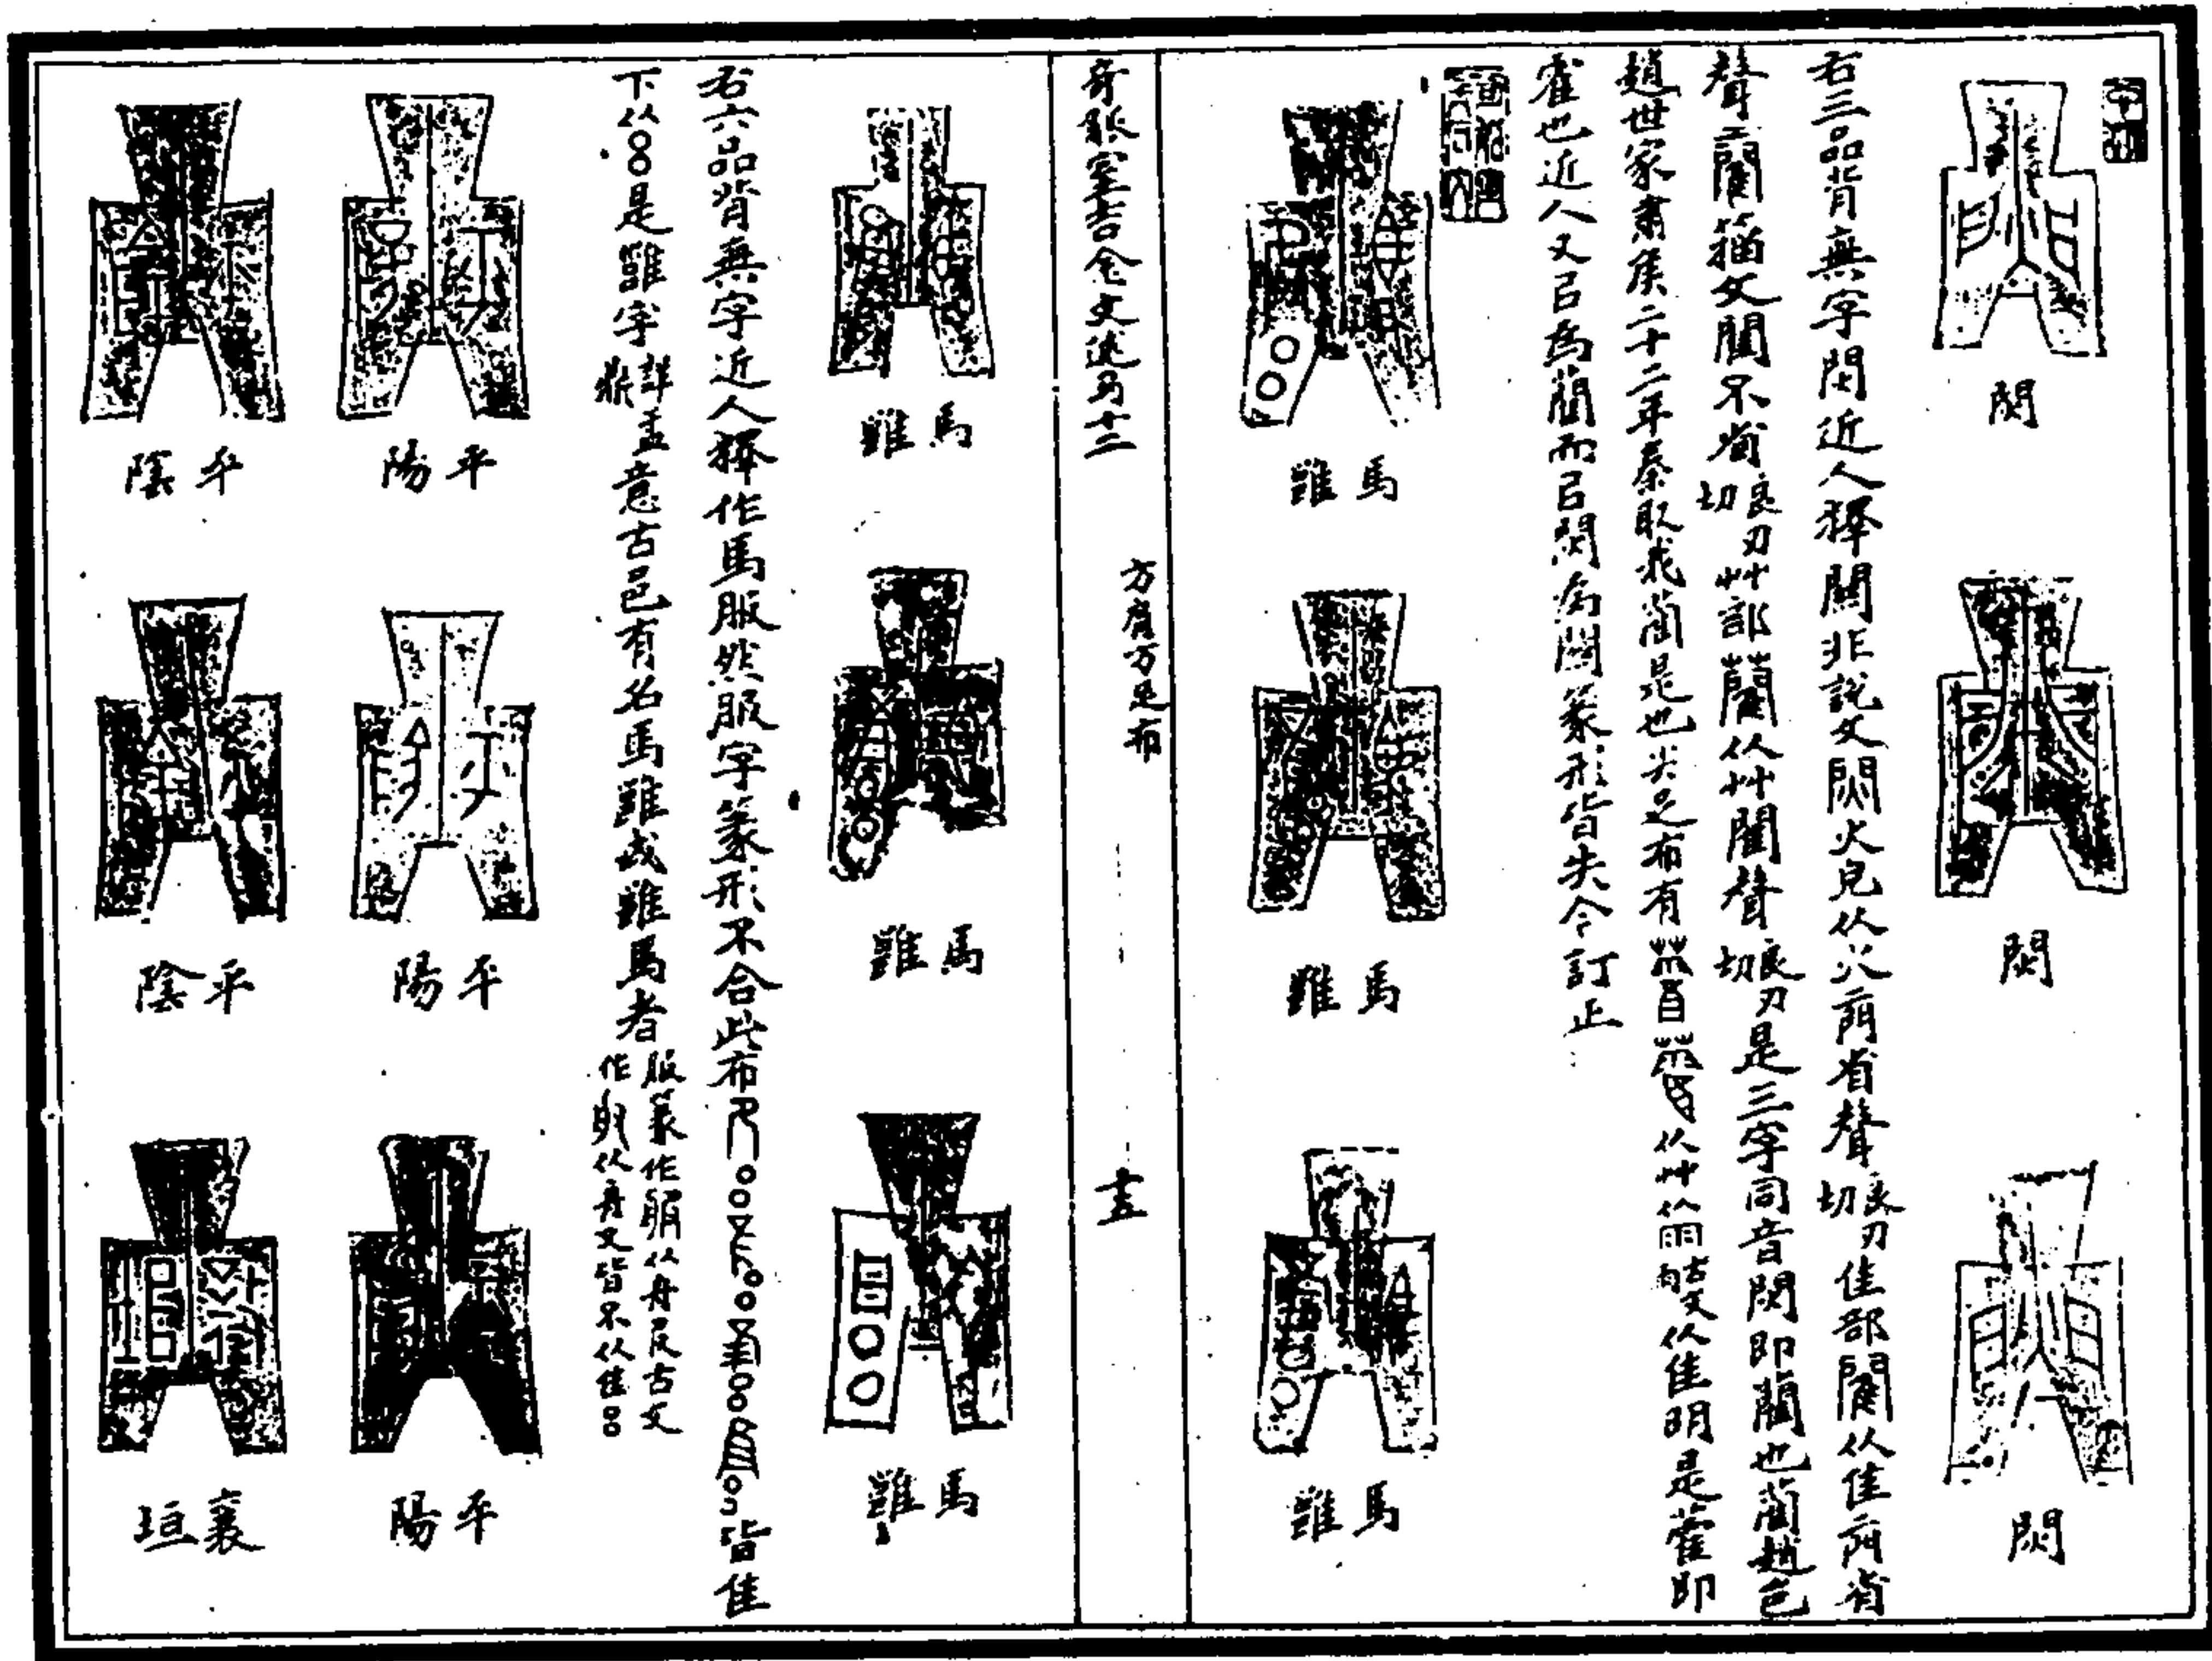 閔
閔
閔
右三品背無字閔近人釋關非說文閔火皃从火㒳省聲良刃切隹部閵从隹㒳省
聲䦮籀文閵不省良刃切艸部藺从艸閵聲良刃切是三字同音閔即藺也藺趙邑
趙世家肅侯二十二年秦取我藺是也尖足布有从艸从雨从隹明是藿即
霍也近人又㠯為藺而㠯閔為關篆形皆失今訂正
馬雖
馬雖
馬雖
奇觚室吉金文述卷十二
方肩方足布
馬雖
馬雖
馬雖
右六品背無字近人釋作馬服然服字篆形不合此布皆隹
下从是雖字詳盂鼎意古邑有名馬雖或雖馬者服篆作从舟𠬝古文作从舟文皆不从隹
平陽
平陽
平陽
平陰
平陰
襄垣